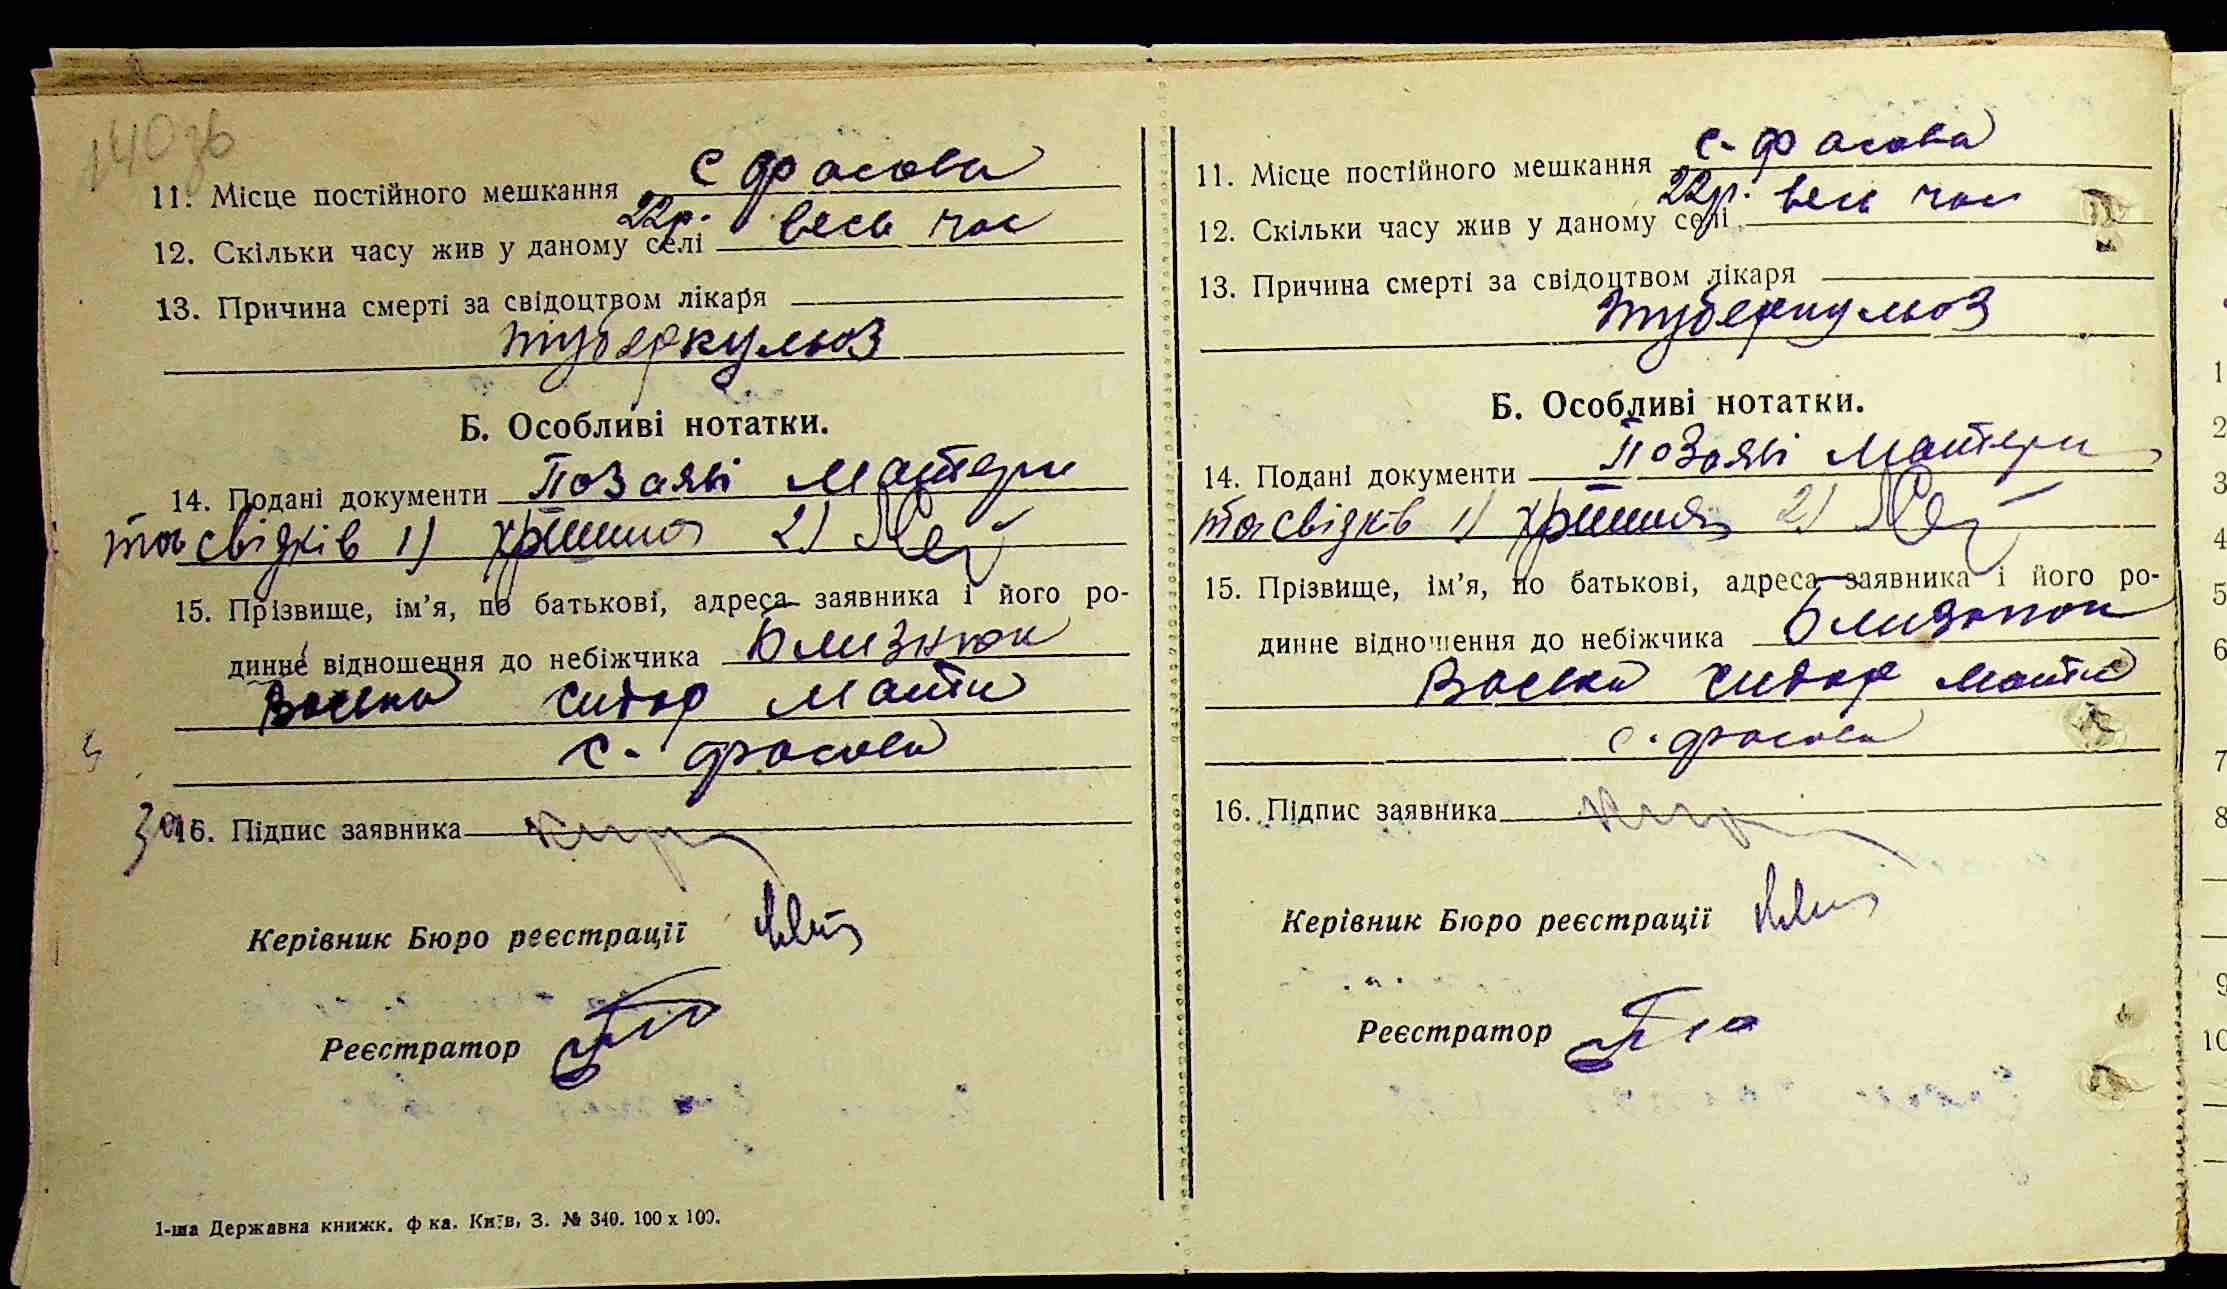 140зв
11. Місце постійного мешкання с Фасова
12. Скільки часу жив у даному селі 22р. весь час
13. Причина смерті за свідоцтвом лікаря
туберкульоз
Б. Особливі нотатки.
14. Подані документи По заяві матери
та свідків 1) 2)
15. Прізвище, ім'я, по батькові, адреса заявника і його ро-
динне відношення до небіжчика Близнюк
мати
с. Фасова
За 16. Підпис заявника
Керівник Бюро реєстрації
Реєстратор
1-ша Державна книжк. ф ка. Київ, З. № 340. 100 х 100.
11. Місце постійного мешкання с. Фасова
12. Скільки часу жив у даному селі 22р. весь час
13. Причина смерті за свідоцтвом лікаря
туберкульоз
Б. Особливі нотатки.
14. Подані документи По заяві матери
та свідків 1) 2)
15. Прізвище, ім'я, по батькові, адреса заявника і його ро-
динне відношення до небіжчика Близнюк
мати
с. Фасова
16. Підпис заявника
Керівник Бюро реєстрації
Реєстратор
1
2
3
4
5
6
7
8
9
10